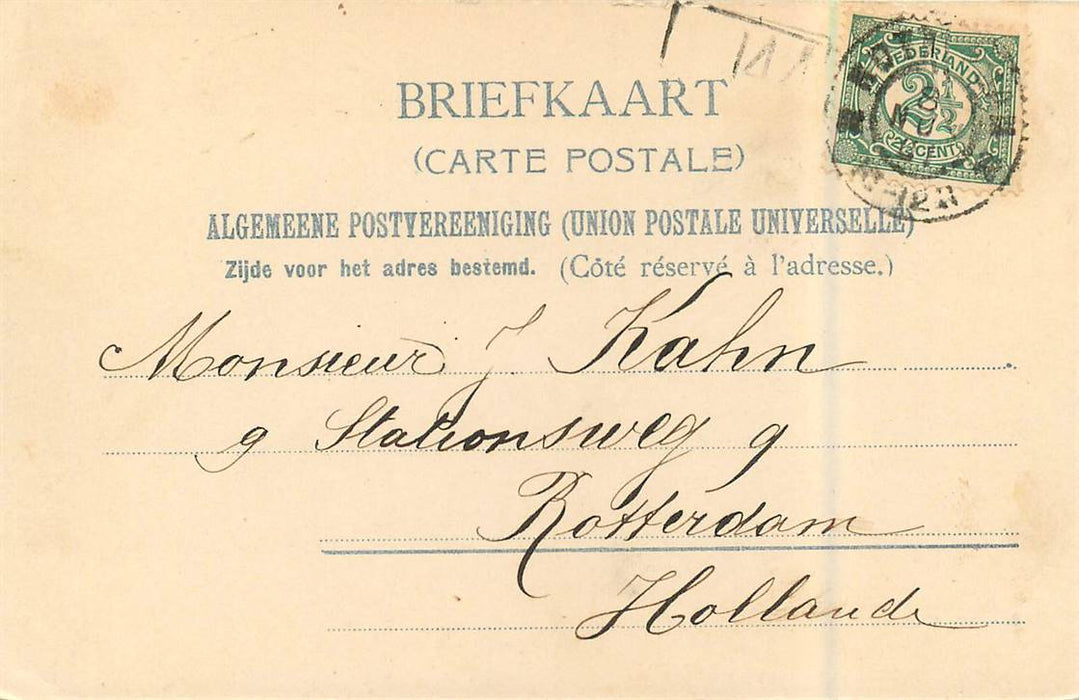 BRIEFKAART
(CARTE POSTALE)
ALGEMEENE POSTVEREENIGING (UNION POSTALE UNIVERSELLE)
Zijde voor het adres bestemd. (Côté réservé à l'adresse.)
NEDERLAND
2½
2½ CENT
Monsieur J. Kahn
9 Stationsweg 9
Rotterdam
Hollande